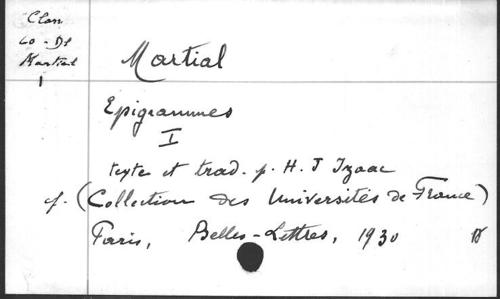 Clas
60-Dt
Martial
1
Martial
Epigrammes
I
texte et trad. p. H. J Izaac
cf. (Collection des Universités de France)
Paris, Belles-Lettres, 1930